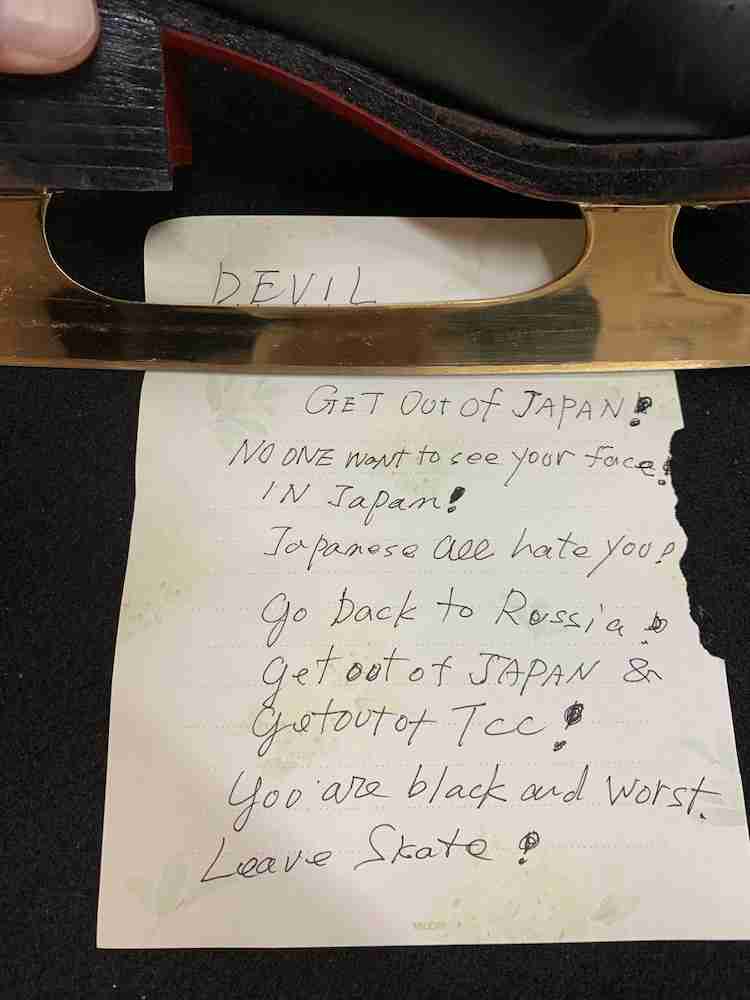 DEVIL
GET OUT of JAPAN!
NO ONE want to see your face!
IN Japan!
Japanese all hate you!
Go back to Russia!
get out of JAPAN &
Get out of TCC!
You are black and worst.
Leave Skate!